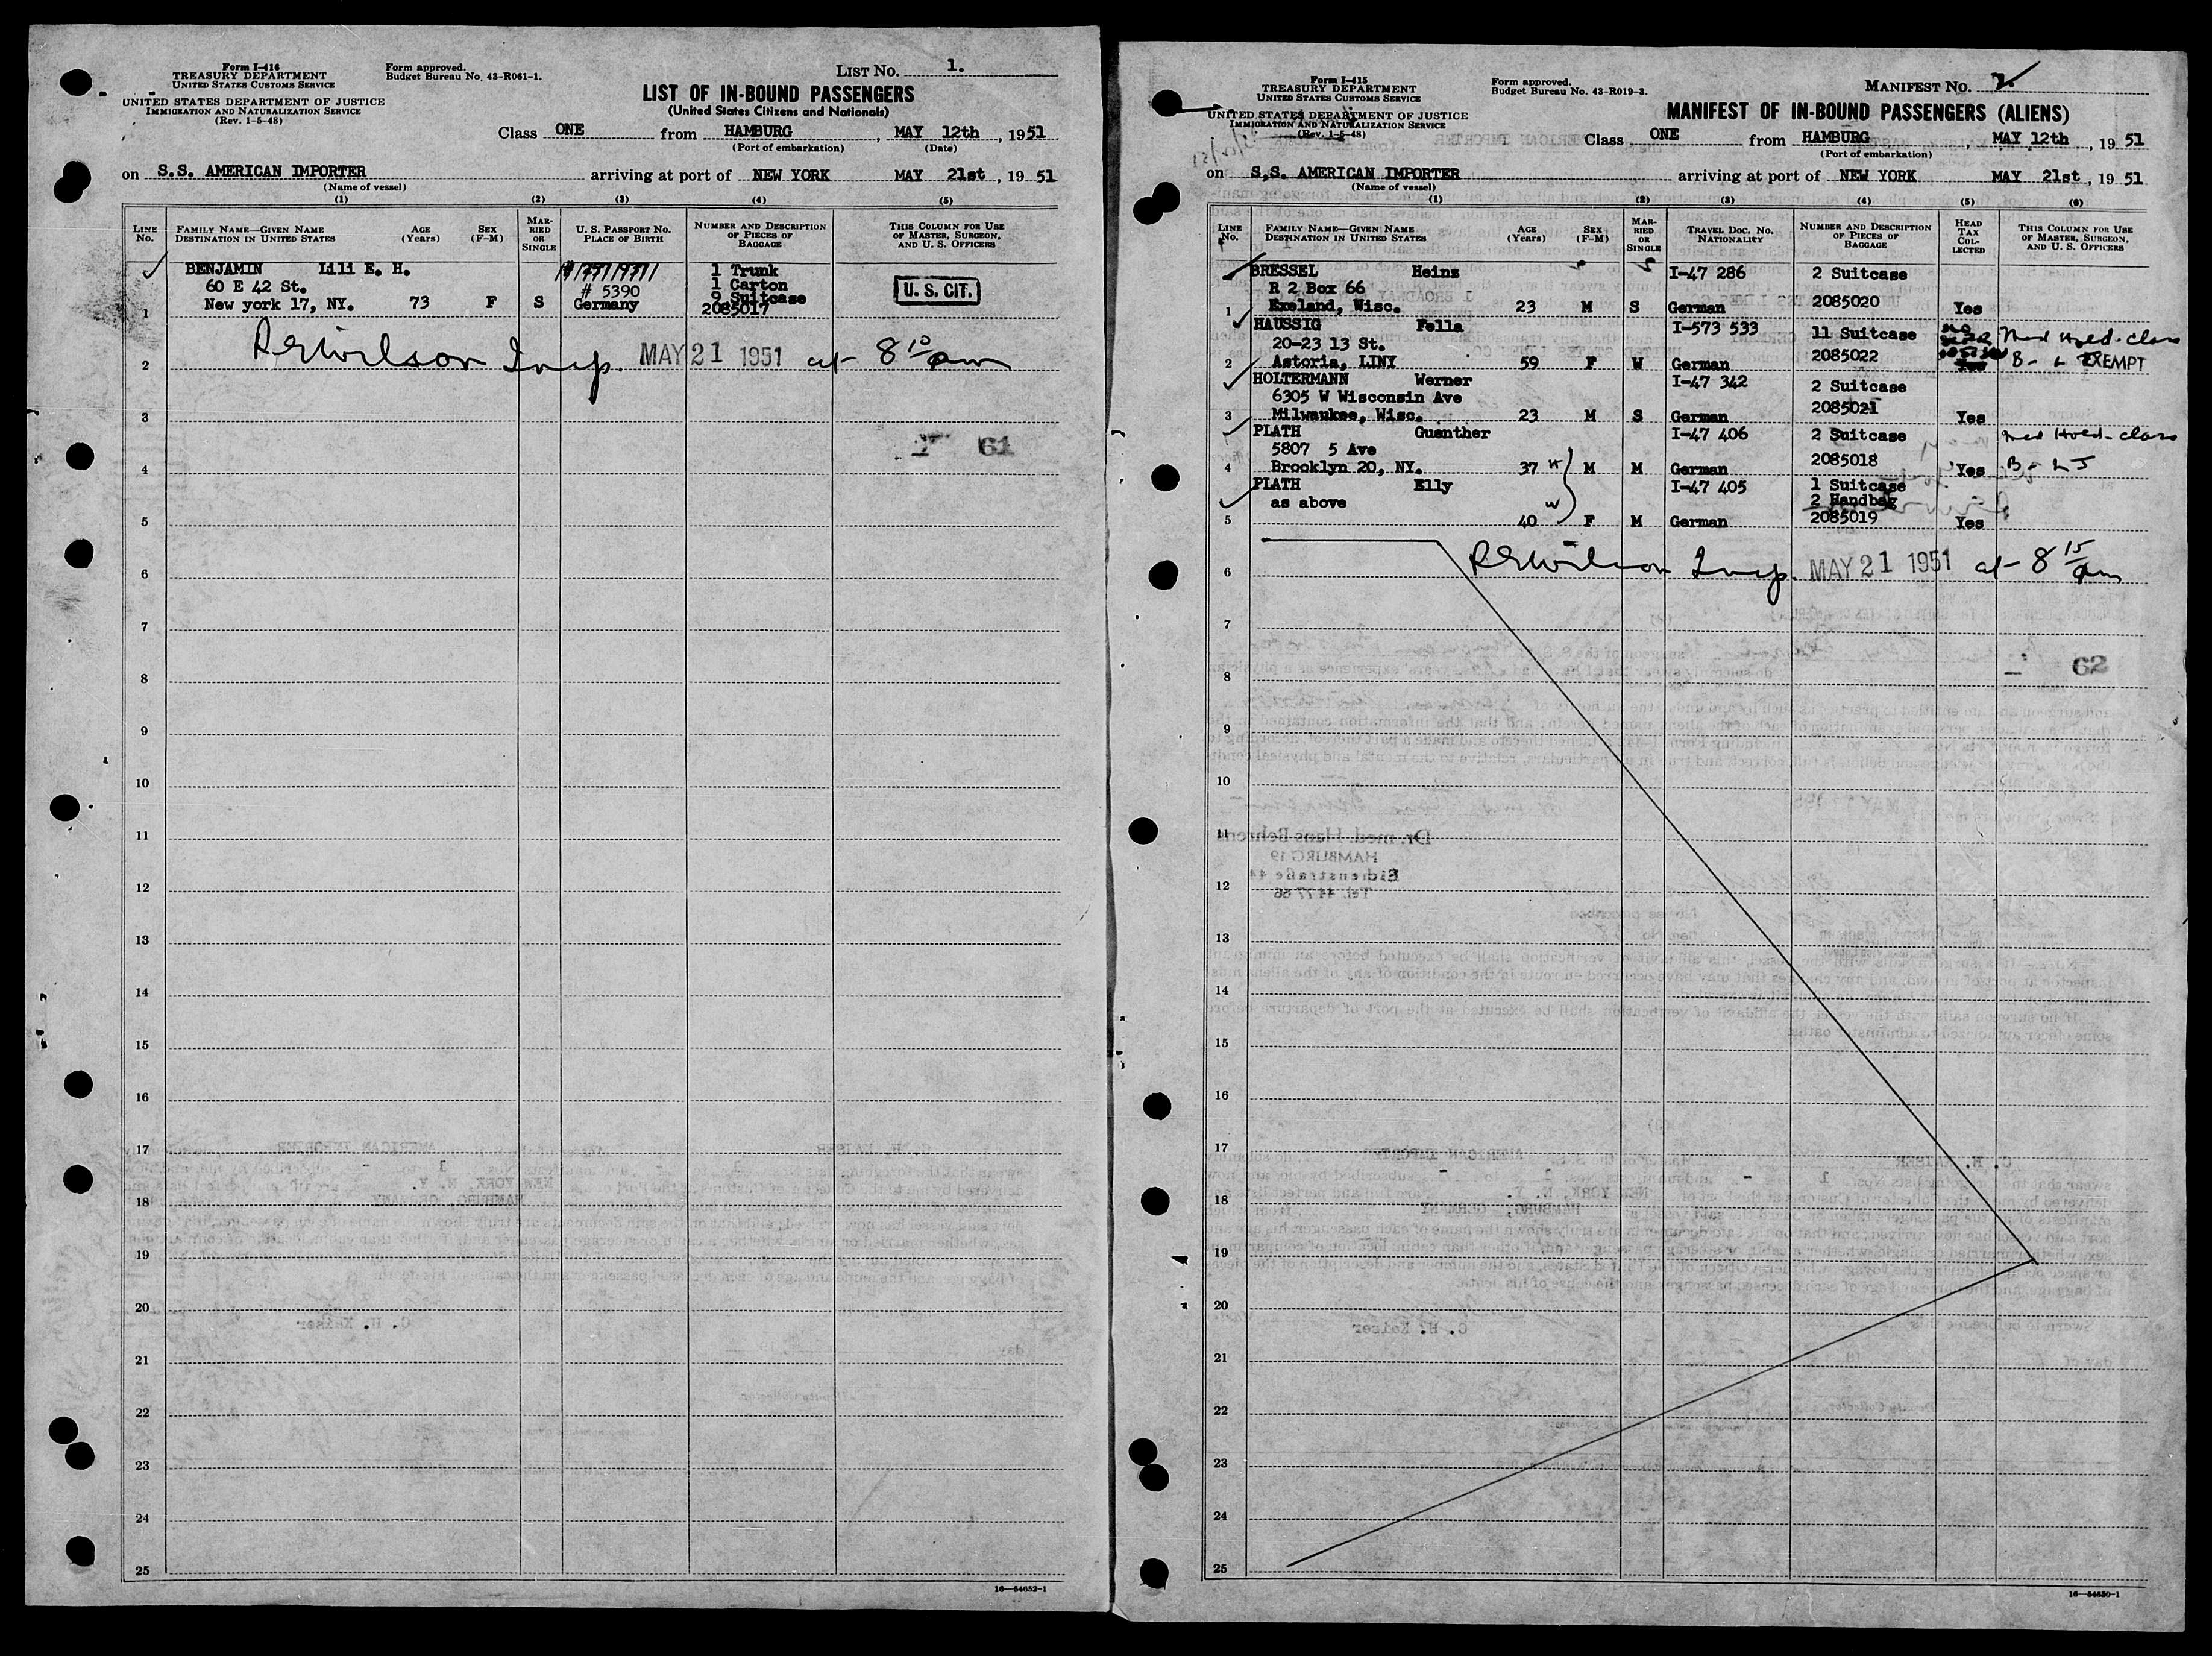 Form I-416
TREASURY DEPARTMENT
UNITED STATES CUSTOMS SERVICE
UNITED STATES DEPARTMENT OF JUSTICE
IMMIGRATION AND NATURALIZATION SERVICE
(Rev. 1-5-48)
Form approved.
Budget Bureau No. 43-R061-1.
LIST NO. 1.
LIST OF IN-BOUND PASSENGERS
(United States Citizens and Nationals)
Class ONE from HAMBURG, MAY 12th, 1951
(Port of embarkation) (Date)
on S.S. AMERICAN IMPORTER arriving at port of NEW YORK MAY 21st, 1951
(Name of vessel)
(1) (2) (3) (4) (5)
LINE NO. FAMILY NAME—GIVEN NAME DESTINATION IN UNITED STATES AGE (Years) SEX (F-M) MARRIED OR SINGLE U. S. PASSPORT NO. PLACE OF BIRTH NUMBER AND DESCRIPTION OF PIECES OF BAGGAGE THIS COLUMN FOR USE OF MASTER, SURGEON, AND U. S. OFFICERS
BENJAMIN Lili E. H. 1 Trunk
60 E 42 St. # 5390 1 Carton U. S. CIT.
New york 17, NY. 73 F S Germany 9 Suitcase
1 2085017
REWilson Insp. MAY 21 1951 at 8 10 am
2
3
61
4
5
6
7
8
9
10
11
12
13
14
15
16
17
18
19
20
21
22
23
24
25
16—54652-1
Form I-415
TREASURY DEPARTMENT
UNITED STATES CUSTOMS SERVICE
UNITED STATES DEPARTMENT OF JUSTICE
IMMIGRATION AND NATURALIZATION SERVICE
(Rev. 1-5-48)
Form approved.
Budget Bureau No. 43-R019-3.
MANIFEST NO. 2
MANIFEST OF IN-BOUND PASSENGERS (ALIENS)
Class ONE from HAMBURG, MAY 12th, 1951
(Port of embarkation)
on S.S. AMERICAN IMPORTER arriving at port of NEW YORK MAY 21st, 1951
(Name of vessel)
(1) (2) (3) (4) (5) (6)
LINE NO. FAMILY NAME—GIVEN NAME DESTINATION IN UNITED STATES AGE (Years) SEX (F-M) MARRIED OR SINGLE TRAVEL DOC. NO. NATIONALITY NUMBER AND DESCRIPTION OF PIECES OF BAGGAGE HEAD TAX COLLECTED THIS COLUMN FOR USE OF MASTER, SURGEON, AND U. S. OFFICERS
BRESSEL Heinz I-47 286 2 Suitcase
R 2 Box 66
1 Exeland, Wisc. 23 M S German 2085020 Yes
HAUSSIG Fella I-573 533 11 Suitcase Med Hold-class
20-23 13 St.
2 Astoria, LINY 59 F W German 2085022 B- L EXEMPT
HOLTERMANN Werner I-47 342 2 Suitcase
6305 W Wisconsin Ave
3 Milwaukee, Wisc. 23 M S German 2085021 Yes
PLATH Guenther I-47 406 2 Suitcase Med Hold-class
5807 5 Ave
4 Brooklyn 20, NY. 37 M M German 2085018 Yes B-
PLATH Elly I-47 405 1 Suitcase
as above 2 Handbag
5 40 W F M German 2085019 Yes
REWilson Insp. MAY 21 1951 at 8 15 am
6
7
62
8
9
10
11
12
13
14
15
16
17
18
19
20
21
22
23
24
25
16—54650-1